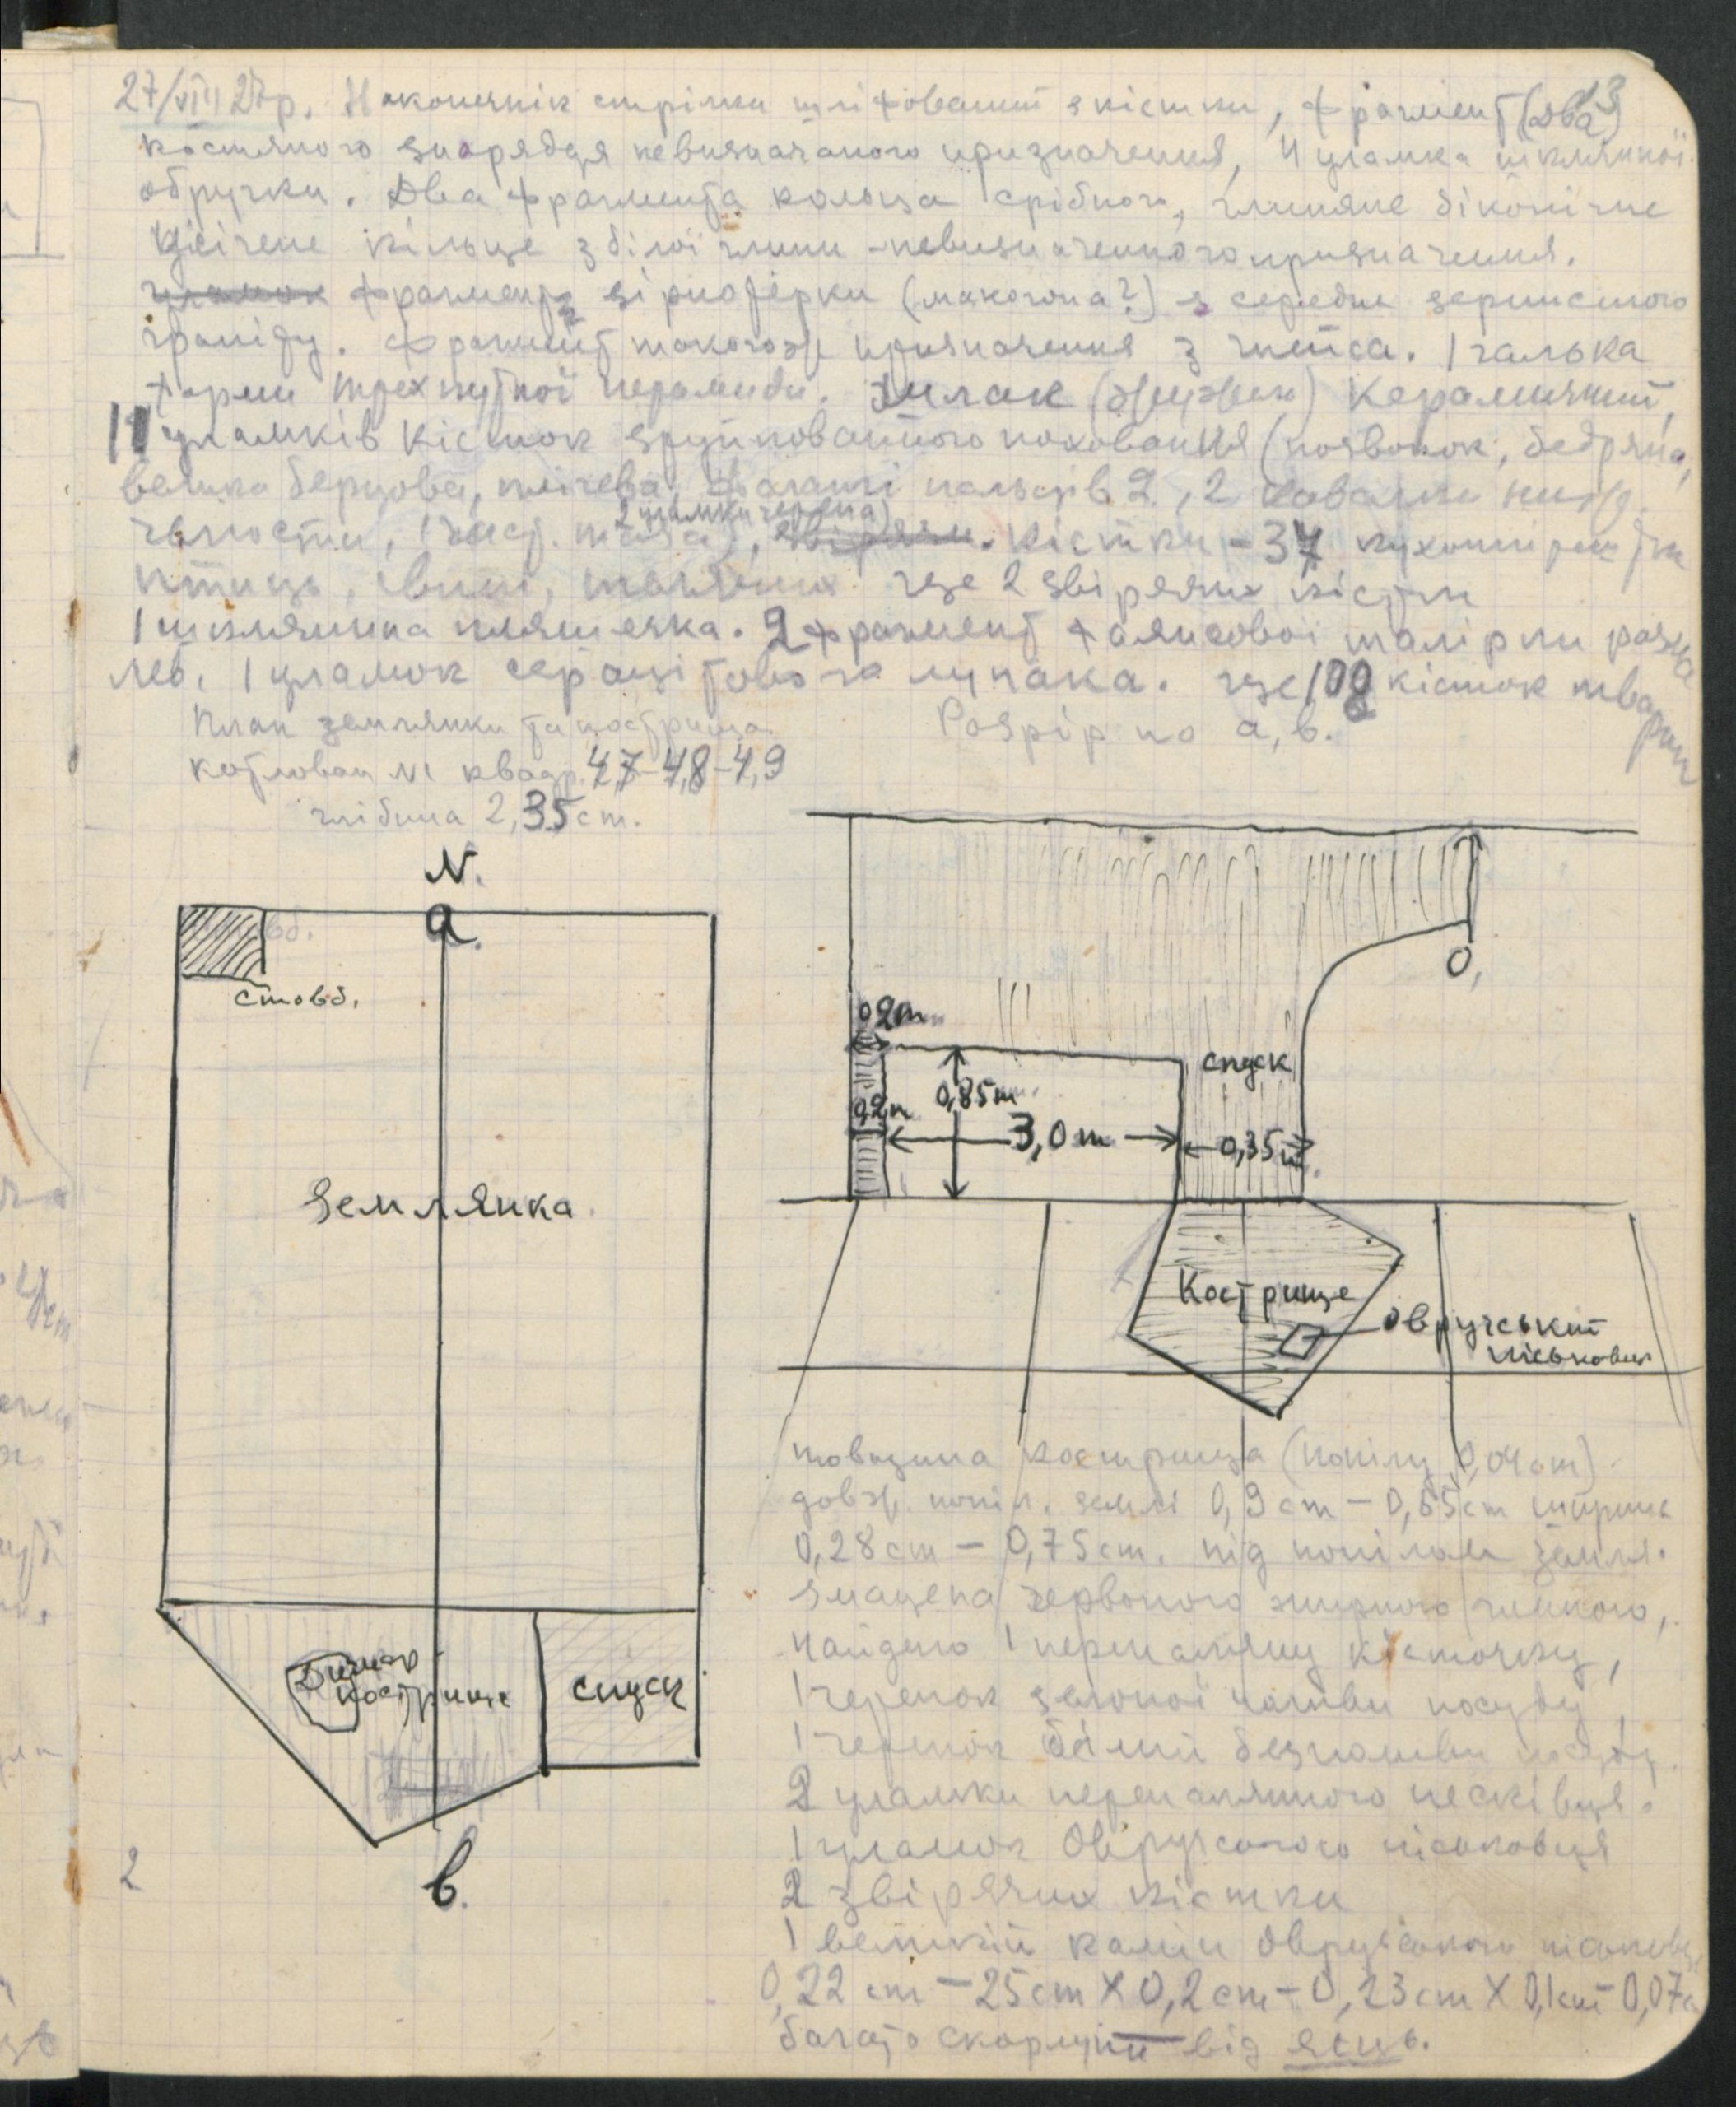 13
27/VIII 27р. Наконечнік стрілки шліфований з кістки, фрагмент (два)
костяного знаряддя невизначаного призначення, 4 уламка шклянної
обручки. Два фрагмента кольца срібного, глиняне біконічне
усічене кільце з білої глини - невизначенного призначення.
фрагмент зернотерки (макогона?) з середне зернистого
граніту. Фрагмент такогож призначення з гнейса. 1 галька
форми трехкутної піраміди. Шлак (жужен) керамичний,
11 уламків кісток зруйнованного поховання (позвонок, бедряна,
велика берцова, плічева, фаланги пальців 2, 2 нижн.
чьлюсти, 1 таза), 2 уламки черепа, кістки - 37 кухонні
птиць, ще 2 звірячих кістки
1 шклянична пляшечка. 2 фрагмент фаянсовоі талірки
1 уламок серицітового лупака. ще 108 кісток тварин
План землянки та кострища.
Розріз по а, в.
котлован №1 квадр. 4,7-4,8-4,9
глібина 2,35 cm.
N.
а.
стовб.
Землянка
кострище
спуск
в.
2
О,
0,2m
0,2m
0,85m
3,0m
спуск
0,35m
Кострище
Овручський
пісковик
товщина кострища (попілу 0,04 cm)
довж. попіл. землі 0,9 cm - 0,65 cm ширина
0,28 cm - 0,75 cm. під попілом земля
змащена червоного жирного глиною,
найдено 1 перепалену кісточку,
1 черепок зеленої поливи посуду,
1 черепок білий без поливи посуду.
2 уламки перепаляного пісківця.
1 уламок Овручського пісковця
2 звірячих кістки
1 великій камін Овручського
0,22 cm - 25 cm X 0,2 cm - 0,23 cm X 0,1 cm 0,07
багато скорлупи від яєць.